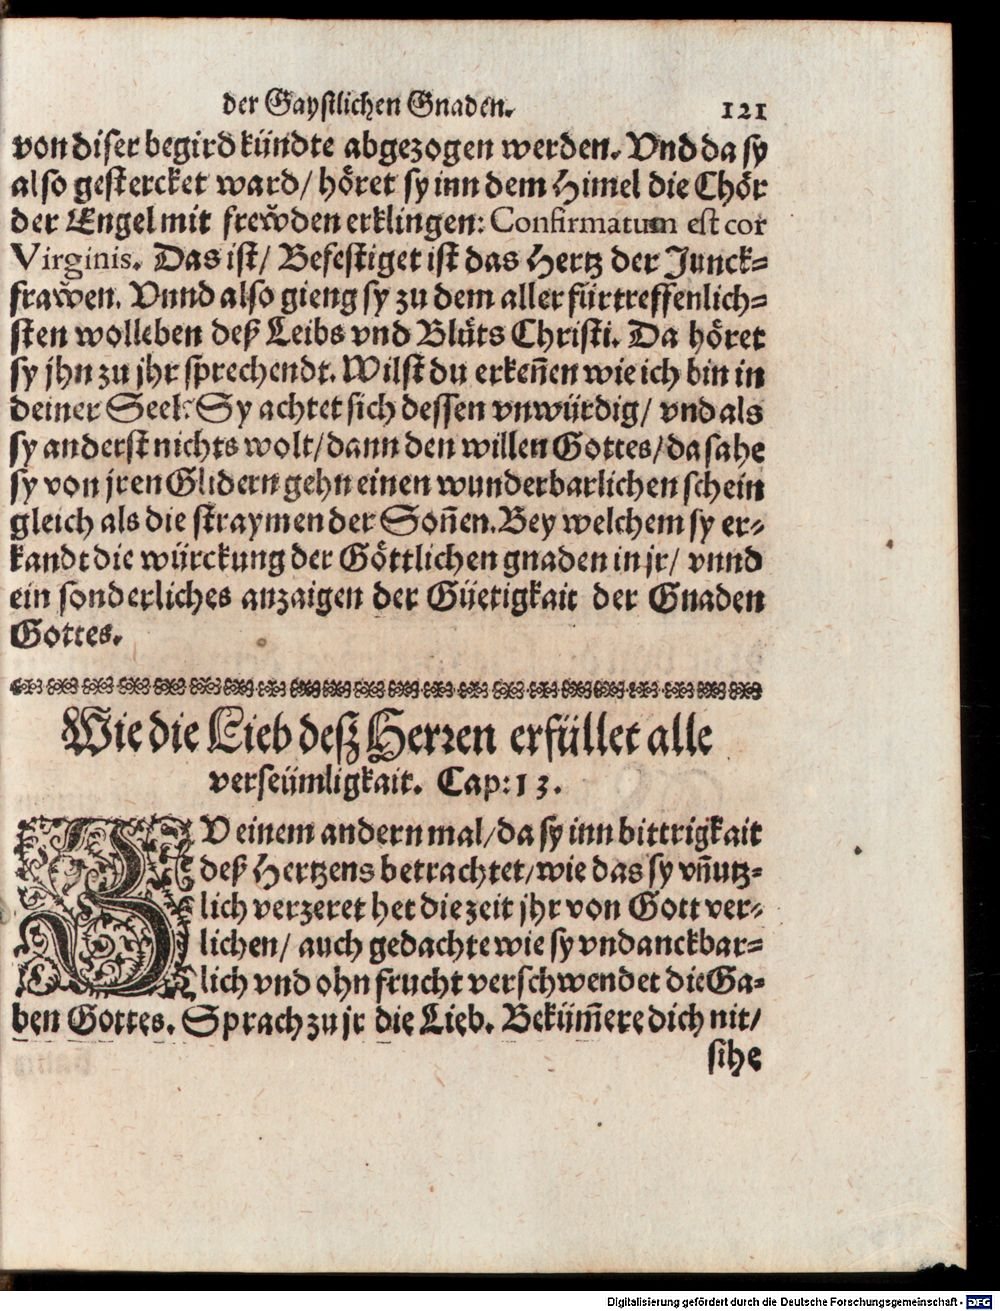 der Gaystlichen Gnaden. 121
von diser begird kündte abgezogen werden. Vnd da sy
also gestercket ward/ höret sy inn dem Himel die Chör
der Engel mit frewden erklingen: Confirmatum est cor
Virginis. Das ist/ Befestiget ist das Hertz der Junck=
frawen. Vnnd also gieng sy zu dem aller fürtreffenlich=
sten wolleben deß Leibs vnd Blůts Christi. Da höret
sy jhn zu jhr sprechendt. Wilst du erkeñen wie ich bin in
deiner Seel: Sy achtet sich dessen vnwürdig/ vnd als
sy anderst nichts wolt/ dann den willen Gottes/ da sahe
sy von jren Glidern gehn einen wunderbarlichen schein
gleich als die straymen der Soñen. Bey welchem sy er=
kandt die würckung der Göttlichen gnaden in jr/ vnnd
ein sonderliches anzaigen der Güetigkait der Gnaden
Gottes.
Wie die Lieb deß Herren erfüllet alle
verseümligkait. Cap: 13.
ZV einem andern mal/ da sy inn bittrigkait
deß Hertzens betrachtet/ wie das sy vñutz=
lich verzeret het die zeit jhr von Gott ver=
lichen/ auch gedachte wie sy vndanckbar=
lich vnd ohn frucht verschwendet die Ga=
ben Gottes. Sprach zu jr die Lieb. Bekům̃ere dich nit/
sihe
Digitalisierung gefördert durch die Deutsche Forschungsgemeinschaft - DFG